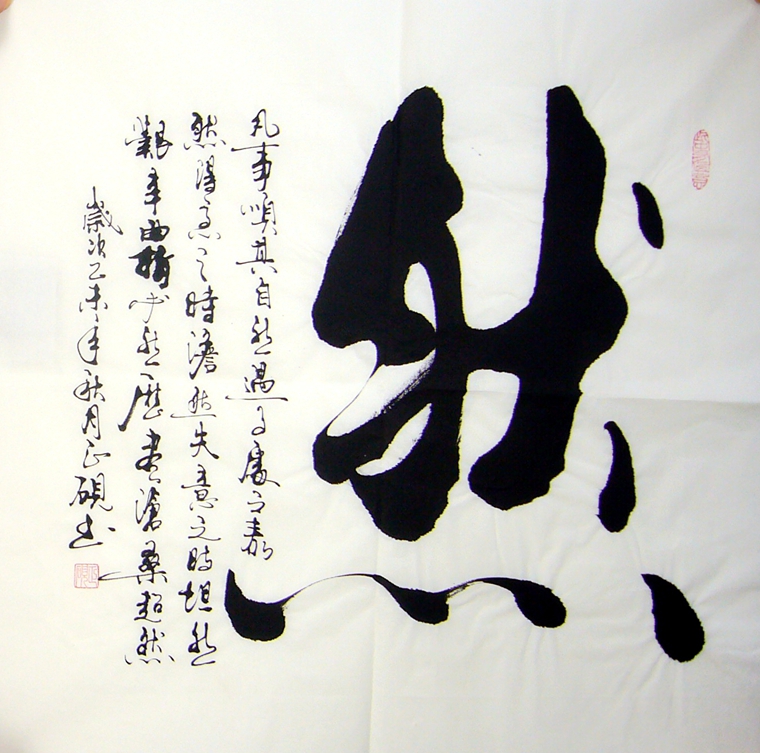 然
凡事順其自然遇事處之泰
然得意之時澹然失意之時坦然
艱辛曲折必然歷盡滄桑超然
歲次乙未年秋月正硯書